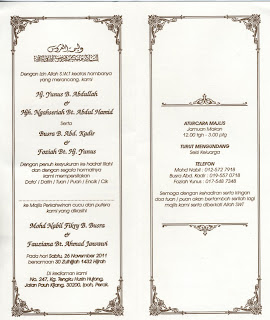 Dengan izin Allah S.W.T keatas hambanya
yang merancang, kami
Hj. Yunus B. Abdullah
&
Hjh. Ngaheeriah Bt. Abdul Hamid
Serta
Busra B. Abd. Kadir
&
Foziah Bt. Hj. Yunus
Dengan penuh kesyukuran ke hadrat Illahi
dan dengan segala hormatnya
kami mempersilakan
Dato' / Datin / Tuan / Puan / Encik / Cik
ke Majlis Perkahwinan cucu dan putera
kami yang dikasihi
Mohd Nabil Fikry B. Busra
&
Fauziana Bt. Ahmad Jawawi
Pada hari Sabtu, 26 November 2011
bersamaan 30 Zulhijjah 1432 Hijrah
Di kediaman kami
No. 247, Kg. Tengku Hussin
Jalan Pauh Kijang, 30200, Ipoh, Perak.
ATURCARA MAJLIS
Jamuan Makan
12.00 tgh - 5.00 ptg
TURUT MENGUNDANG
Seisi Keluarga
TELEFON
Mohd Nabil : 012-572 7918
Busra Abd. Kadir : 019-557 0718
Foziah Yunus : 017-548 7348
Semoga dengan kehadiran serta iringan
doa tuan / puan akan bertambah serilah lagi
majlis kami serta diberkati Allah SWT